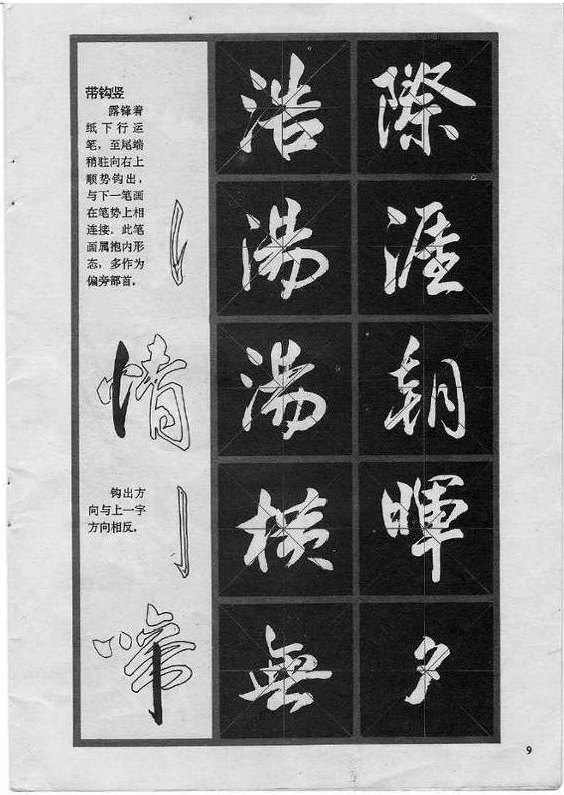 带钩竖
露锋着
纸下行运
笔,至尾端
稍驻向右上
顺势钩出,
与下一笔画
在笔势上相
连接,此笔
画属抱内形
态,多作为
偏旁部首。
情
钩出方
向与上一字
方向相反。
啼
浩湯湯橫無
際涯朝暉夕
9